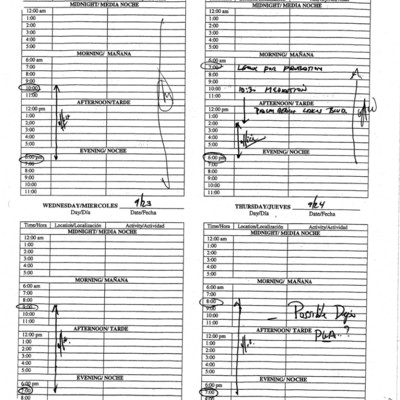 12:00 am
MIDNIGHT/ MEDIA NOCHE
1:00
2:00
3:00
4:00
5:00
MORNING/ MAÑANA
6:00
7:00
8:00
9:00
10:00
11:00
M
AFTERNOON/TARDE
12:00 pm
1:00
2:00
3:00
4:00
5:00
EVENING/ NOCHE
6:00 pm
7:00
8:00
9:00
10:00
11:00
12:00 am
MIDNIGHT/ MEDIA NOCHE
1:00
2:00
3:00
4:00
5:00
MORNING/ MAÑANA
6:00
7:00
8:00
9:00
10:00
10:30 MEDIATION
11:00
AFTERNOON/ TARDE
12:00 pm
1:00
2:00
3:00
4:00
5:00
EVENING/ NOCHE
6:00 pm
7:00
8:00
9:00
10:00
11:00
WEDNESDAY/MIERCOLES 9/23
Day/Día Date/Fecha
Time/Hora Location/Localización Activity/Actividad
MIDNIGHT/ MEDIA NOCHE
12:00 am
1:00
2:00
3:00
4:00
5:00
MORNING/ MAÑANA
6:00
7:00
8:00
9:00
10:00
11:00
AFTERNOON/ TARDE
12:00 pm
1:00
2:00
3:00
4:00
5:00
EVENING/ NOCHE
6:00 pm
7:00
8:00
9:00
10:00
11:00
THURSDAY/JUEVES 9/24
Day/Día Date/Fecha
Time/Hora Location/Localización Activity/Actividad
MIDNIGHT/ MEDIA NOCHE
12:00 am
1:00
2:00
3:00
4:00
5:00
MORNING/ MAÑANA
6:00
7:00
8:00
9:00
10:00
11:00
Possible
AFTERNOON/ TARDE
12:00 pm
1:00
2:00
3:00
4:00
5:00
EVENING/ NOCHE
6:00 pm
7:00
8:00
9:00
10:00
11:00